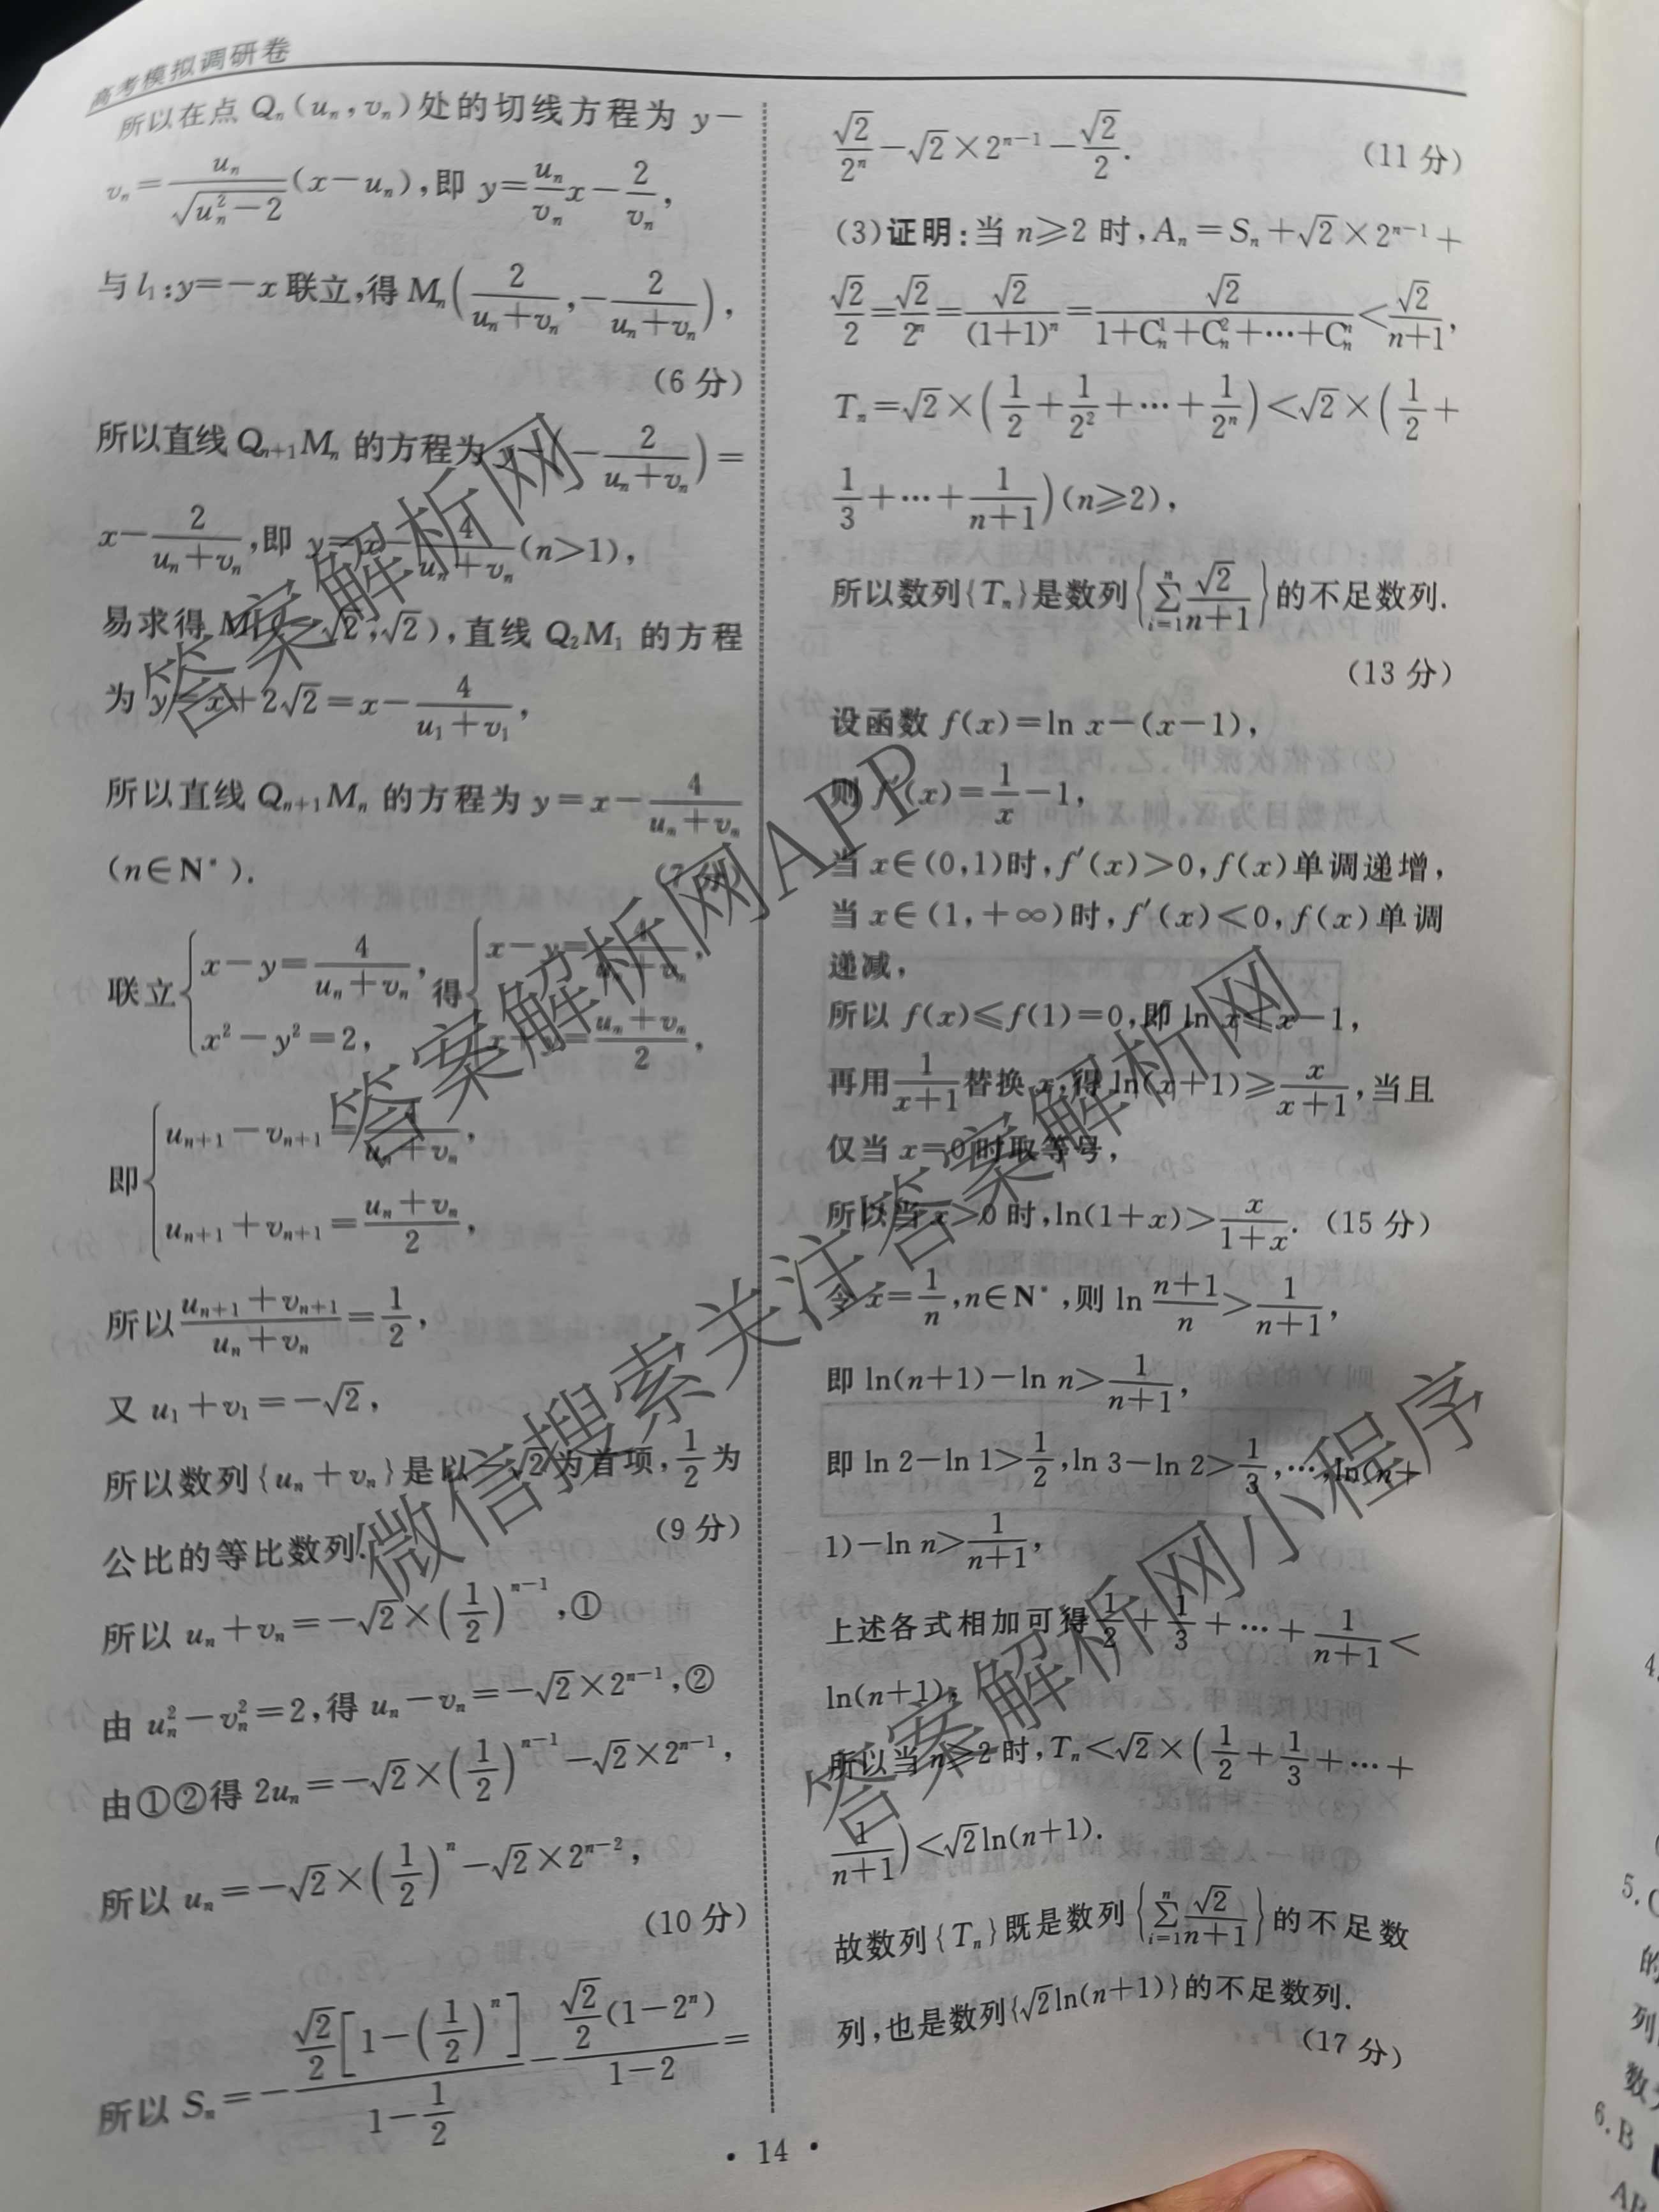 高考模拟调研卷
所以在点 Qₙ(uₙ,vₙ)处的切线方程为 y−
vₙ=uₙ/√(uₙ²−2)(x−uₙ),即 y=(uₙ/vₙ)x−2/vₙ,
与 l₁:y=−x 联立,得 Mₙ(2/(uₙ+vₙ),−2/(uₙ+vₙ)),
(6 分)
所以直线 Qₙ₊₁Mₙ 的方程为 y−(−2/(uₙ+vₙ))=
x−2/(uₙ+vₙ),即 y=x−4/(uₙ+vₙ)(n>1),
易求得 M₁(−√2,√2),直线 Q₂M₁ 的方程
为 y=x+2√2=x−4/(u₁+v₁),
所以直线 Qₙ₊₁Mₙ 的方程为 y=x−4/(uₙ+vₙ)
(n∈N*).
联立{x−y=4/(uₙ+vₙ), x²−y²=2, 得{x−y=4/(uₙ+vₙ), x+y=(uₙ+vₙ)/2,
即{uₙ₊₁−vₙ₊₁=4/(uₙ+vₙ), uₙ₊₁+vₙ₊₁=(uₙ+vₙ)/2,
所以(uₙ₊₁+vₙ₊₁)/(uₙ+vₙ)=1/2,
又 u₁+v₁=−√2,
所以数列{uₙ+vₙ}是以−√2为首项,1/2为
公比的等比数列.
(9 分)
所以 uₙ+vₙ=−√2×(1/2)ⁿ⁻¹,①
由 uₙ²−vₙ²=2,得 uₙ−vₙ=−√2×2ⁿ⁻¹,②
由①②得 2uₙ=−√2×(1/2)ⁿ⁻¹−√2×2ⁿ⁻¹,
所以 uₙ=−√2×(1/2)ⁿ−√2×2ⁿ⁻²,
(10 分)
所以 Sₙ=−(√2/2)[1−(1/2)ⁿ]/(1−1/2)−(√2/2)(1−2ⁿ)/(1−2)=
√2/2ⁿ−√2×2ⁿ⁻¹−√2/2.
(11 分)
(3)证明:当 n≥2 时,Aₙ=Sₙ+√2×2ⁿ⁻¹+
√2/2=√2/2ⁿ=√2/(1+1)ⁿ=√2/(1+C¹ₙ+C²ₙ+⋯+Cⁿₙ)<√2/(n+1),
Tₙ=√2×(1/2+1/2²+⋯+1/2ⁿ)<√2×(1/2+
1/3+⋯+1/(n+1))(n≥2),
所以数列{Tₙ}是数列{∑ⁿᵢ₌₁ √2/(n+1)}的不足数列.
(13 分)
设函数 f(x)=ln x−(x−1),
则 f′(x)=1/x−1,
当 x∈(0,1)时,f′(x)>0,f(x)单调递增,
当 x∈(1,+∞)时,f′(x)<0,f(x)单调
递减,
所以 f(x)≤f(1)=0,即 ln x≤x−1,
再用1/(x+1)替换 x,得 ln(x+1)≥x/(x+1),当且
仅当 x=0时取等号,
所以当 x>0 时,ln(1+x)>x/(1+x). (15 分)
令 x=1/n,n∈N*,则 ln (n+1)/n>1/(n+1),
即 ln(n+1)−ln n>1/(n+1),
即 ln 2−ln 1>1/2,ln 3−ln 2>1/3,⋯,ln(n+
1)−ln n>1/(n+1),
上述各式相加可得1/2+1/3+⋯+1/(n+1)<
ln(n+1),
所以当 n≥2时,Tₙ<√2×(1/2+1/3+⋯+
1/(n+1))<√2ln(n+1).
故数列{Tₙ}既是数列{∑ⁿᵢ₌₁ √2/(n+1)}的不足数
列,也是数列{√2ln(n+1)}的不足数列.
(17 分)
· 14 ·
答案解析网
答案解析网APP
微信搜索关注答案解析网
答案解析网小程序
5.
6.B